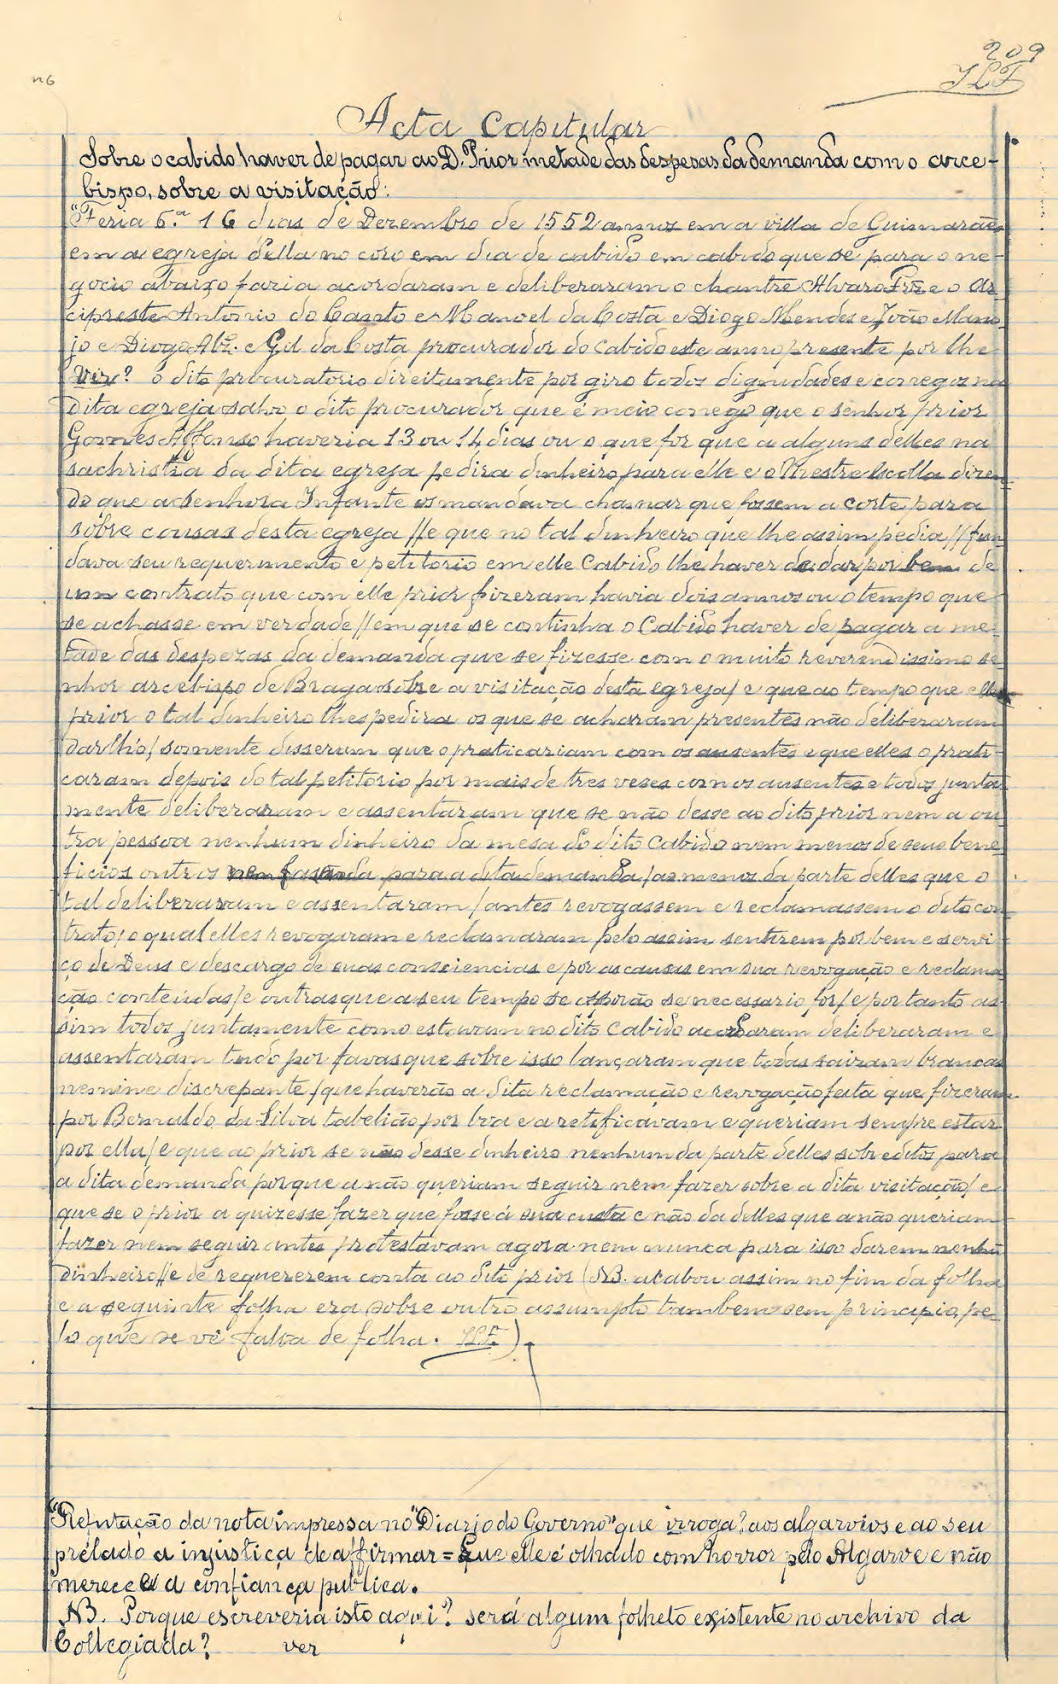 209
JLF
n6
Acta Capitular
Sobre o cabido haver de pagar ao D. Prior metade das despesas da demanda com o arce-
bispo, sobre a visitação:
"Feria 6.ª 16 dias de Dezembro de 1552 annos em a villa de Guimarães
em a egreja della no coro em dia de cabido em cabido que se para o ne-
gocio abaixo faria acordaram e deliberaram o chantre Alvaro e o Ar
cipreste Antonio do Canto e Manoel da Costa e Diogo Mendes e João Maxo
jo e Diogo Alz. e Gil da Costa procurador do Cabido este anno presente por lhe
Vir? o dito procuratorio direitamente por giro todos dignidades e conegos na
dita egreja salvo o dito procurador que é meio conego que o senhor prior
Gomes Affonso haveria 13 ou 14 dias ou o que for que a alguns delles na
sachristia da dita egreja pedira dinheiro para elle e o Mestre Escolla dizen
do que a Senhora Infante os mandava chamar que fossem a corte para
sobre cousas desta egreja // e que no tal dinheiro que lhe assim pedia // fun
dava seu requerimento e petitorio em elle Cabido lhe haver de dar por bem de
um contrato que com elle prior fizeram havia dois annos ou o tempo que
se achasse em verdade // em que se continha o Cabido haver de pagar a me-
tade das despezas da demanda que se fizesse com o muito reverendissimo se
nhor arcebispo de Braga sobre a visitação desta egreja / e que ao tempo que elle
prior o tal dinheiro lhes pedira os que se acharam presentes não deliberaram
darlho / somente disseram que o praticariam com os ausentes e que elles o prati-
caram depois do tal petitorio por mais de tres veses com os ausentes e todos junta
mente deliberaram e assentaram que se não desse ao dito prior nem a ou
tra pessoa nenhum dinheiro da mesa do dito Cabido nem menos de seus bene
ficios outros nem fazenda para a dita demanda / ao menos da parte delles que o
tal deliberavam e assentaram / antes revogassem e reclamassem o dito con
trato / o qual elles revogaram e reclamaram pelo assim sentirem por bem e servi-
ço de Deus e descargo de suas consciencias e por as causas em sua revogação e reclama
ção conteúdas / e outras que a seu tempo se se necessario for / e por tanto as
sim todos juntamente como estavam no dito Cabido acordaram deliberaram e
assentaram tudo por favas que sobre isso lançaram que todas sairam brancas
nemine discrepante / que haverão a dita reclamação e revogação feita que fizeram
por Bernaldo da Silva tabelião por boa e a retificavam e queriam sempre estar
por ella / e que ao prior se não desse dinheiro nenhum da parte delles sobreditos para
a dita demanda porque a não queriam seguir nem fazer sobre a dita visitação / e
que se o prior a quizesse fazer que fosse á sua custa e não da delles que a não queriam
fazer nem seguir antes protestavam agora nem nunca para isso darem nenhũ
dinheiro // e de requererem conta ao dito prior (NB. acabou assim no fim da folha
e a seguinte folha era sobre outro assumpto tambem sem principio, pe-
lo que se vê falta de folha. JLF.)
"Refutação da nota impressa no "Diario do Governo" que irroga? aos algarvios e ao seu
prelado a injustiça de affirmar = Que elle é olhado com horror pelo Algarve e não
merece a confiança publica.
NB. Porque escreveria isto aqui? será algum folheto existente no archivo da
Collegiada? ver